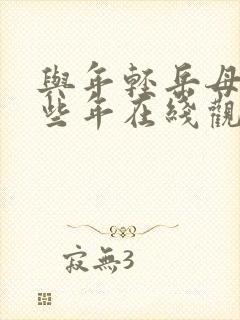 與年輕岳母
些年在綫觀
寂無3